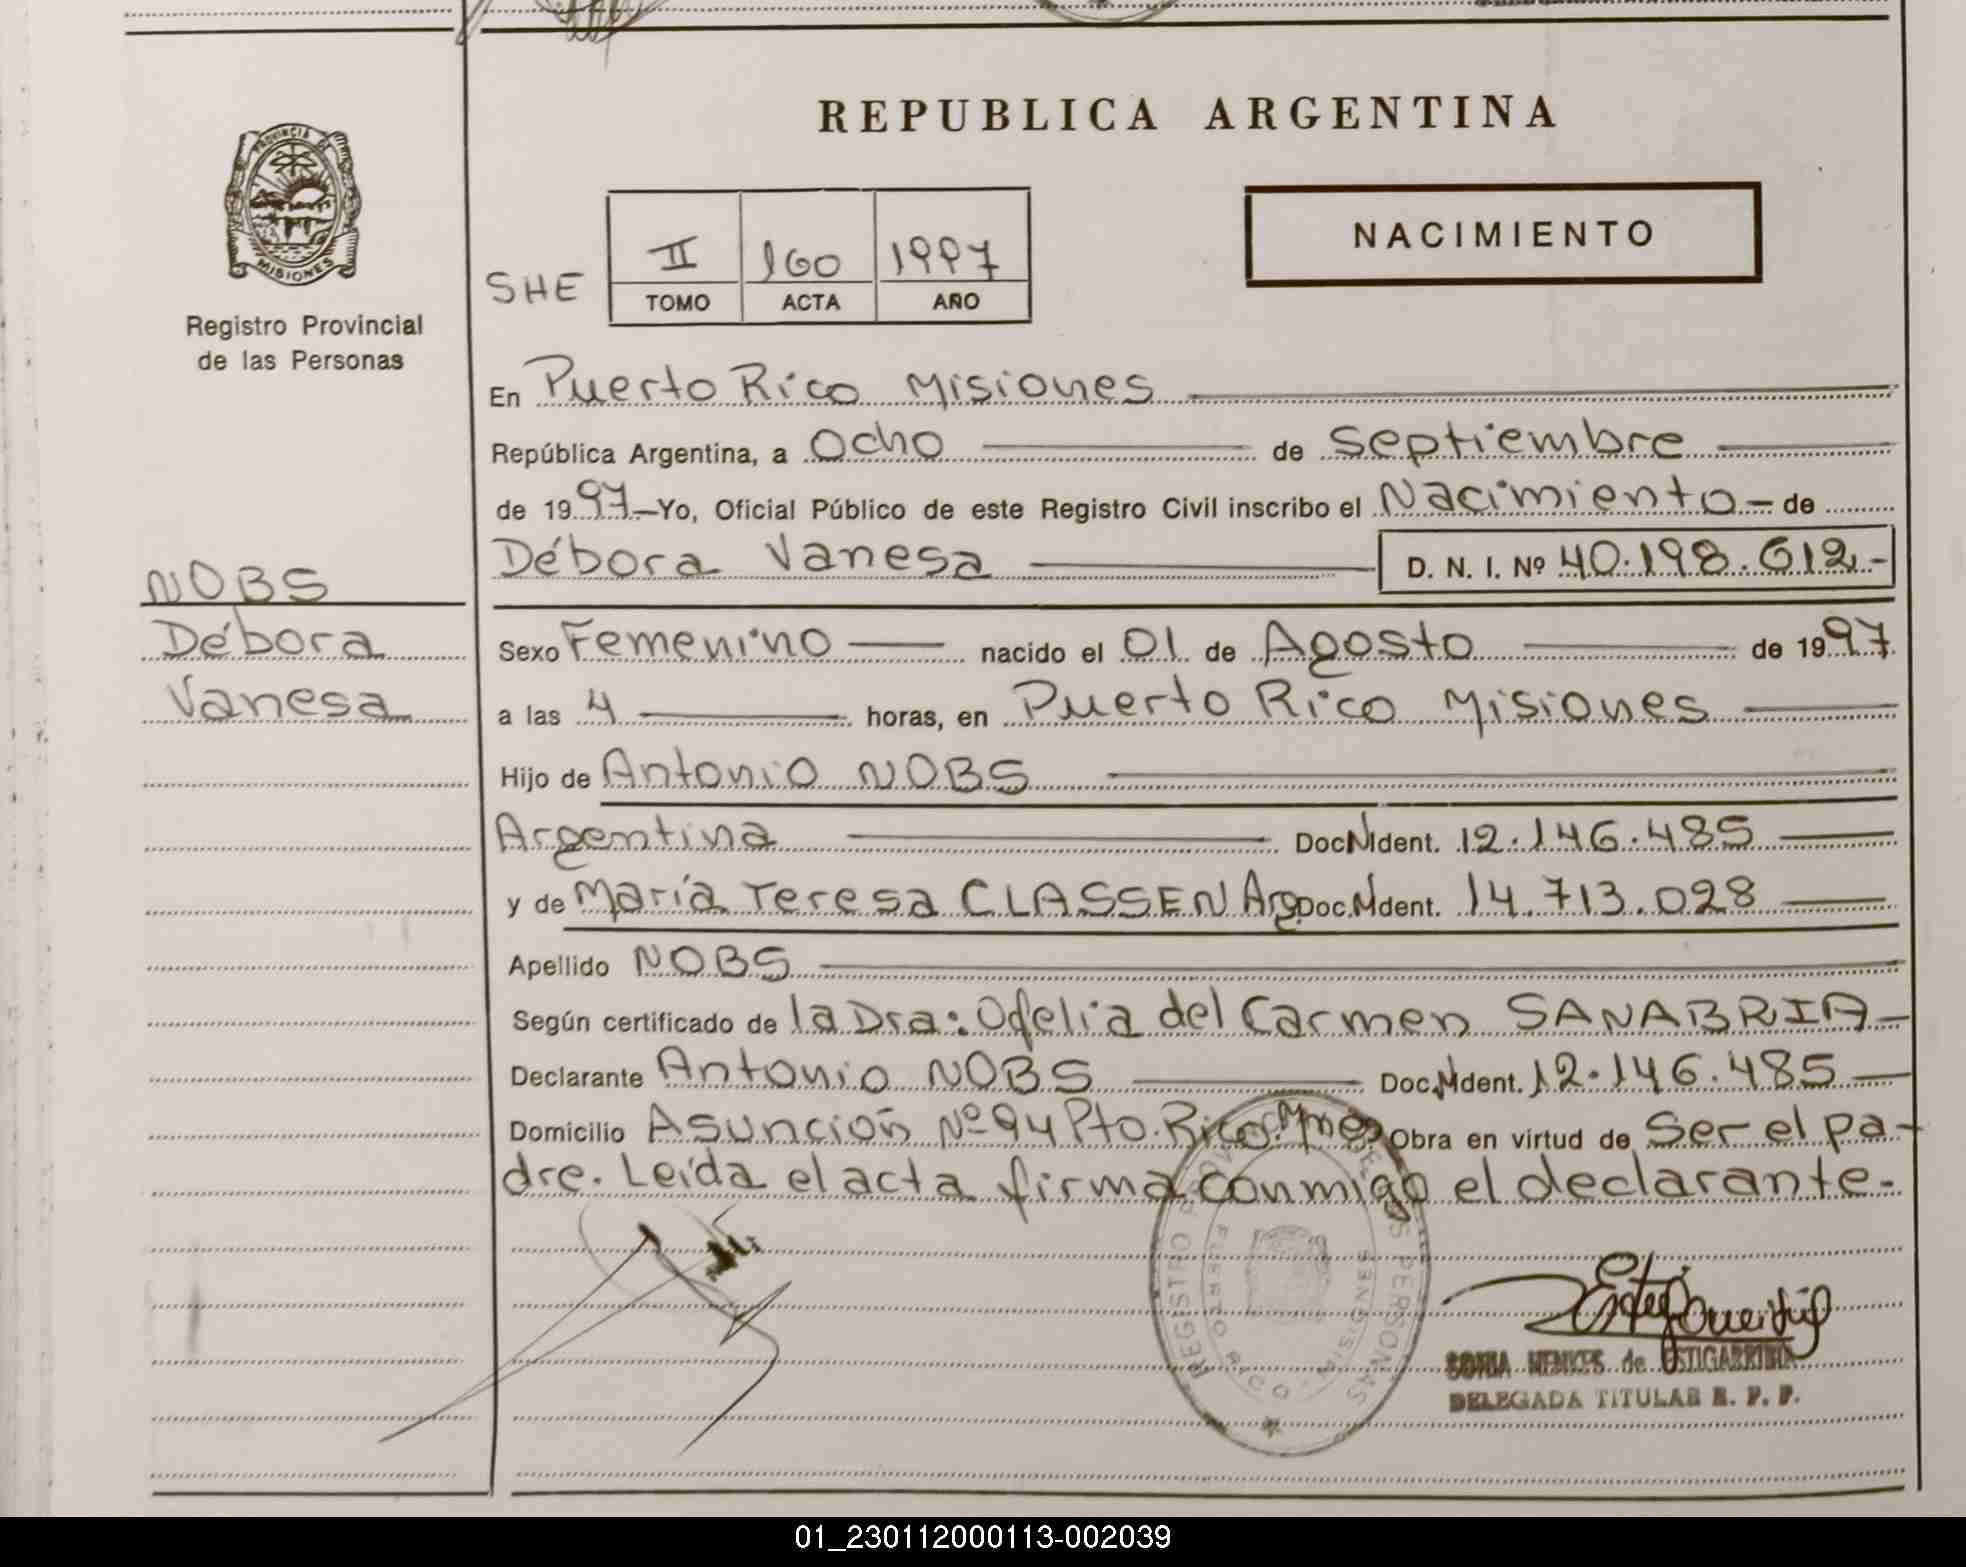 PROVINCIA DE
MISIONES
Registro Provincial
de las Personas
NOBS
Débora
Vanesa
REPUBLICA ARGENTINA
NACIMIENTO
SHE
II 160 1997
TOMO ACTA AÑO
En Puerto Rico Misiones
República Argentina, a Ocho de Septiembre
de 1997 Yo, Oficial Público de este Registro Civil inscribo el Nacimiento - de
Débora Vanesa D. N. I. Nº 40.198.612-
Sexo Femenino nacido el 01 de Agosto de 1997
a las 4 horas, en Puerto Rico Misiones
Hijo de Antonio NOBS
Argentina Doc.N.Ident. 12.146.485
y de María Teresa CLASSEN Arg. Doc.N.Ident. 14.713.028
Apellido NOBS
Según certificado de la Dra: Ofelia del Carmen SANABRIA-
Declarante Antonio NOBS Doc.N.Ident. 12.146.485
Domicilio Asunción Nº 94 Pto. Rico. Mnes Obra en virtud de Ser el pa-
dre. Leída el acta firma conmigo el declarante.
REGISTRO PROV. DE LAS PERSONAS
PUERTO RICO - MISIONES
SONIA MENKES de ESTIGARRIBIA
DELEGADA TITULAR R. P. P.
01_230112000113-002039